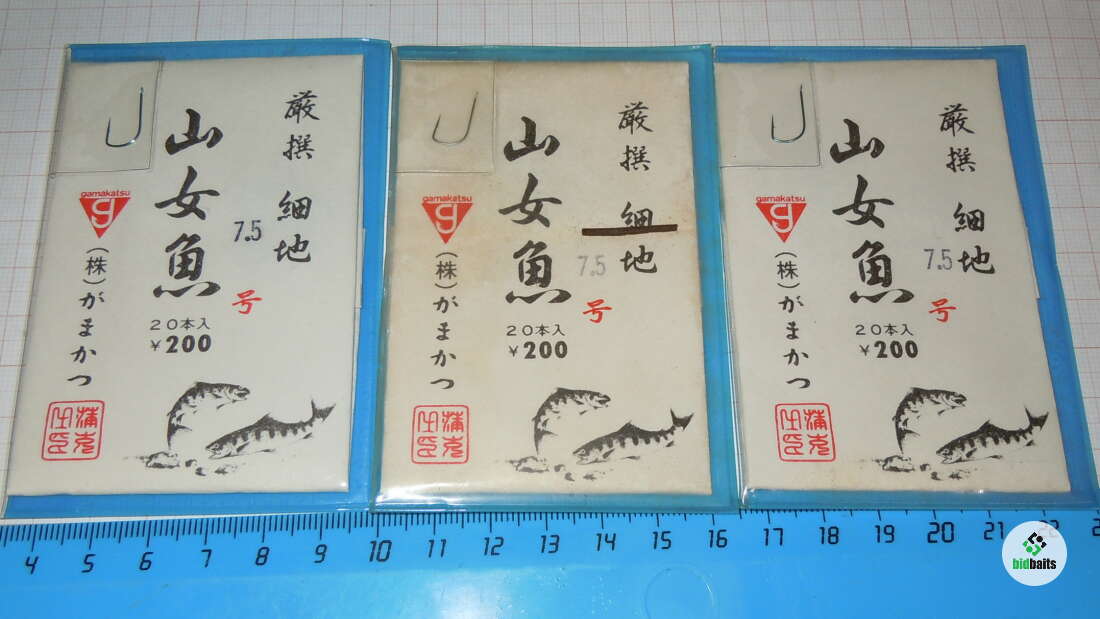 厳撰 細地
山女魚
7.5
号
gamakatsu
g
(株)がまかつ
20本入
¥200
厳撰 細地
山女魚
7.5
号
gamakatsu
g
(株)がまかつ
20本入
¥200
厳撰 細地
山女魚
7.5
号
gamakatsu
g
(株)がまかつ
20本入
¥200
4 5 6 7 8 9 10 11 12 13 14 15 16 17 18 19 20 21 22
bidbaits